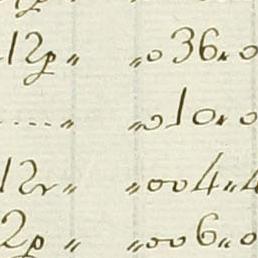 12p „ „036„0
....„ „010„0
12r„ „004„4
2p „ „006„0